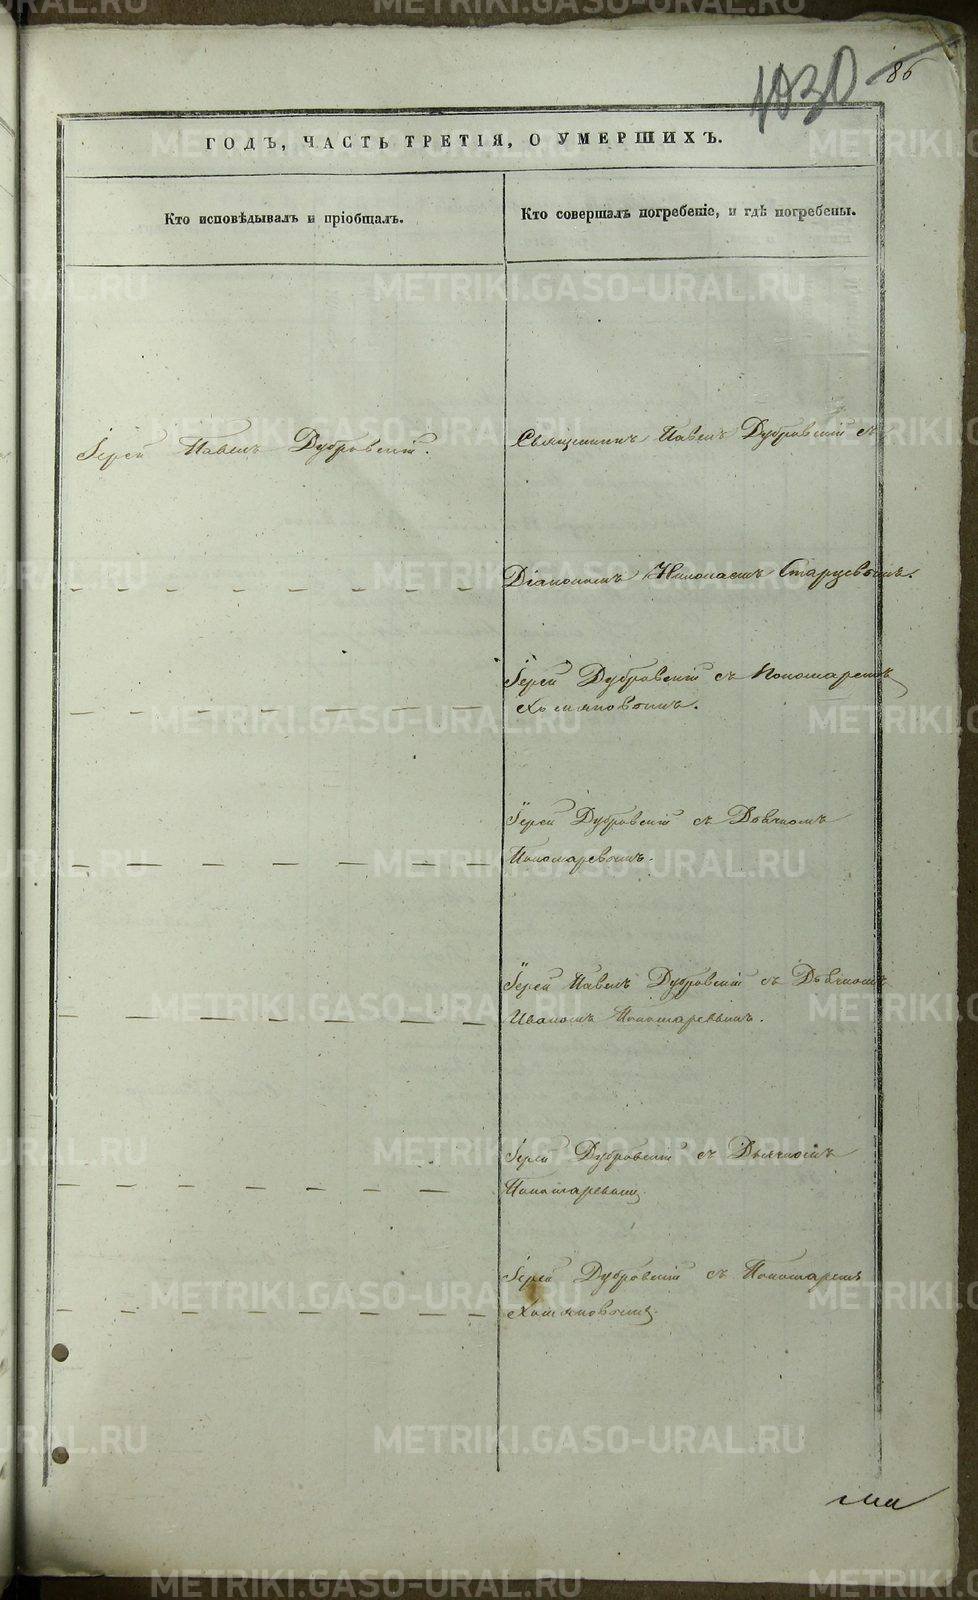 1030
86
ГОДЪ, ЧАСТЬ ТРЕТІЯ, О УМЕРШИХЪ.
Кто исповѣдывалъ и пріобщалъ.
Кто совершалъ погребеніе, и гдѣ погребены.
Іерей Павелъ Дубровскій.
Священникъ Павелъ Дубровскій съ
Діакономъ Николаемъ Старцевымъ.
Іерей Дубровскій съ Пономаремъ
Хомяковымъ.
Іерей Дубровскій съ Дьячкомъ
Пономаревымъ.
Іерей Павелъ Дубровскій съ Дьячкомъ
Иваномъ Пономаревымъ.
Іерей Дубровскій съ Дьячкомъ
Пономаревымъ
Іерей Дубровскій съ Пономаремъ
Хомяковымъ
METRIKI.GASO-URAL.RU